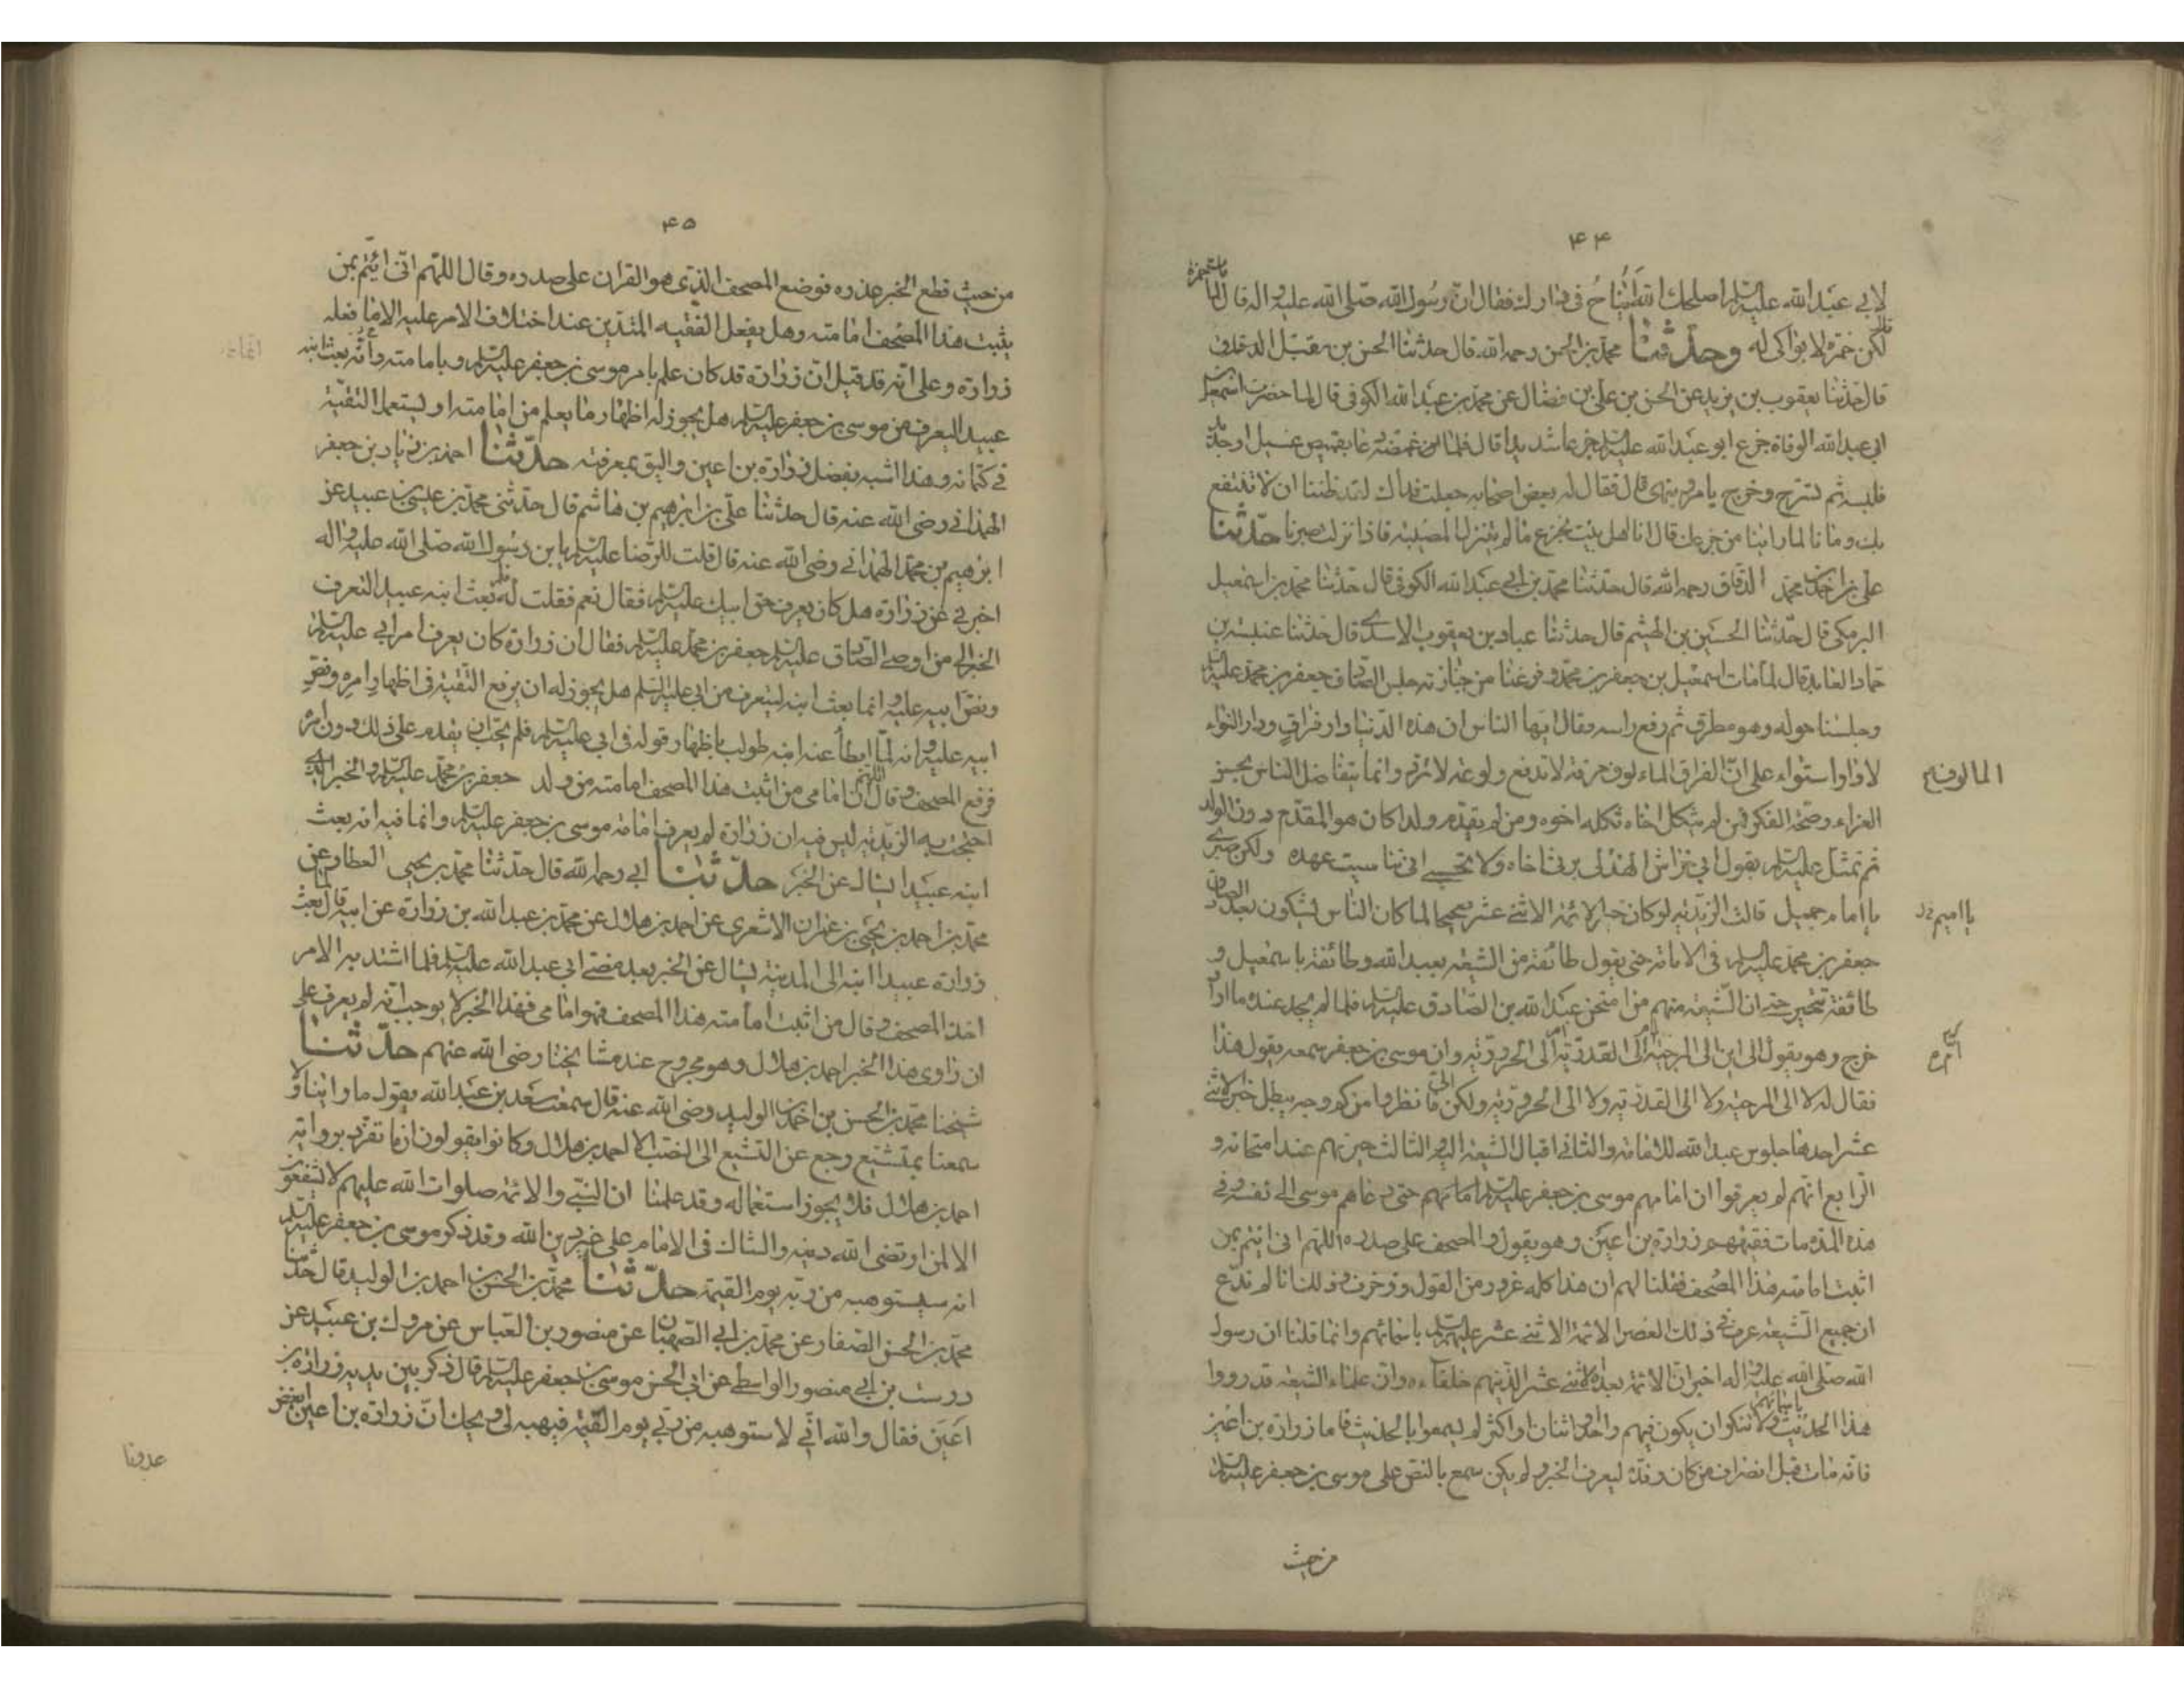 ۴۴
لابي عبد الله عليه السلم اصلحك الله يناح في دارك فقال ان رسول الله صلى الله عليه واله قال لما مات حمزة
لكن حمزة لا بواكي له وحدثنا محمد بن الحسن رحمه الله قال حدثنا الحسن بن متيل الدقاق
قال حدثنا يعقوب بن يزيد عن الحسن بن علي بن فضال عن محمد بن عبد الله الكوفي قال لما حضرت اسمعيل بن
ابي عبد الله الوفاة جزع ابو عبد الله عليه السلم جزعا شديدا قال فلما ان غمضه دعا بقميص غسيل او جديد
فلبسه ثم تسرح وخرج يامر وينهى قال فقال له بعض اصحابه جعلت فداك لقد ظننا ان لا ننتفع
بك زمانا لما راينا من جزعك قال انا اهل بيت نجزع ما لم ينزل المصيبة فاذا نزلت صبرنا حدثنا
علي بن احمد بن محمد الدقاق رحمه الله قال حدثنا محمد بن ابي عبد الله الكوفي قال حدثنا محمد بن اسمعيل
البرمكي قال حدثنا الحسين بن الهيثم قال حدثنا عباد بن يعقوب الاسدي قال حدثنا عنبسة بن
بجاد العابد قال لما مات اسمعيل بن جعفر بن محمد وفرغنا من جنازته جلس الصادق جعفر بن محمد عليه السلم
وجلسنا حوله وهو مطرق ثم رفع راسه فقال ايها الناس ان هذه الدنيا دار فراق ودار التواء
لا دار استواء على ان لفراق المالوف حرقة لا تدفع ولوعة لا ترد وانما يتفاضل الناس بحسن
المالوف خ
العزاء وصحة الفكر فمن لم يثكل اخاه ثكله اخوه ومن لم يقدم ولدا كان هو المقدم دون الولد
ثم تمثل عليه السلم بقول ابي خراش الهذلي يرثي اخاه ولا تحسبي اني تناسيت عهده ولكن صبري
يا امام جميل قالت الزيدية لو كان خبر الائمة الاثنى عشر صحيحا لما كان الناس يشكون بعد الصادق
يا اميم
جعفر بن محمد عليه السلم في الامامة حتى يقول طائفة من الشيعة بعبد الله وطائفة باسمعيل و
طائفة تتحير حتى ان الشيعة منهم من امتحن عبد الله بن الصادق عليه السلم فلما لم يجد عنده ما اراد
خرج وهو يقول الى اين الى المرجئة ام الى القدرية ام الى الحرورية وان موسى بن جعفر سمعه يقول هذا
فقال له لا الى المرجئة ولا الى القدرية ولا الى الحرورية ولكن الي فانظروا من كم وجه يبطل خبر الاثنى
عشر احدها جلوس عبد الله للامامة والثاني اقبال الشيعة اليه والثالث حيرتهم عند امتحانه و
الرابع انهم لم يعرفوا ان امامهم موسى بن جعفر عليه السلم امامهم حتى دعاهم موسى الى نفسه وفي
هذه المدة مات فقيههم زرارة بن اعين وهو يقول والمصحف على صدره اللهم اني ائتم بمن
اثبت امامته هذا المصحف فقلنا لهم ان هذا كله غرور من القول وزخرف وذلك انا لم ندع
ان جميع الشيعة عرف في ذلك العصر الائمة الاثنى عشر عليهم السلم باسمائهم وانما قلنا ان رسول
الله صلى الله عليه واله اخبر ان الائمة بعده الاثنى عشر الذين هم خلفاءه وان علماء الشيعة قد رووا
هذا الحديث باسمائهم ولا ننكر ان يكون فيهم واحد او اثنان او اكثر لم يسمعوا بالحديث فاما زرارة بن اعين
فانه مات قبل انصراف من كان وفده ليعرف الخبر ولم يكن سمع بالنص على موسى بن جعفر عليه السلم
من حيث
۴۵
من حيث قطع الخبر عذره فوضع المصحف الذي هو القران على صدره وقال اللهم اني ائتم بمن
يثبت هذا المصحف امامته وهل يفعل الفقيه المتدين عند اختلاف الامر عليه الا ما فعله
زرارة وعلى انه قد قيل ان زرارة قد كان علم بامر موسى بن جعفر عليه السلم وبامامته وانه بعث ابنه
عبيد اليعرف من موسى بن جعفر عليه السلم هل يجوز له اظهار ما يعلم من امامته او ليستعمل التقية
في كتمانه وهذا اشبه بفضل زرارة بن اعين واليق بمعرفته حدثنا احمد بن زياد بن جعفر
الهمداني رضي الله عنه قال حدثنا علي بن ابرهيم بن هاشم قال حدثني محمد بن عيسى بن عبيد عن
ابرهيم بن محمد الهمداني رضي الله عنه قال قلت للرضا عليه السلم يا بن رسول الله صلى الله عليه واله
اخبرني عن زرارة هل كان يعرف حق ابيك عليه السلم فقال نعم فقلت له فلم بعث ابنه عبيد التعرف
الخبر الى من اوصى الصادق عليه السلم جعفر بن محمد عليه السلم فقال ان زرارة كان يعرف امر ابي عليه السلم
ونص ابيه عليه وانما بعث ابنه ليتعرف من ابي عليه السلم هل يجوز له ان يرفع التقية في اظهار امره ونص
ابيه عليه وانه لما ابطأ عنه ابنه طولب باظهار قوله في ابي عليه السلم فلم يحب ان يقدم على ذلك دون امره
فرفع المصحف وقال اللهم ان امامي من اثبت هذا المصحف امامته من ولد جعفر بن محمد عليه السلم والخبر الذي
احتجت به الزيدية ليس فيه ان زرارة لم يعرف امامة موسى بن جعفر عليه السلم وانما فيه انه بعث
ابنه عبيد ليسال عن الخبر حدثنا ابي رحمه الله قال حدثنا محمد بن يحيى العطار عن
محمد بن احمد بن يحيى بن عمران الاشعري عن احمد بن هلال عن محمد بن عبد الله بن زرارة عن ابيه قال لما بعث
زرارة عبيدا ابنه الى المدينة ليسال عن الخبر بعد مضي ابي عبد الله عليه السلم فلما اشتد به الامر
اخذ المصحف وقال من اثبت امامته هذا المصحف فهو امامي فهذا الخبر لا يوجب انه لم يعرف على
ان راوي هذا الخبر احمد بن هلال وهو مجروح عند مشايخنا رضي الله عنهم حدثنا
شيخنا محمد بن الحسن بن احمد بن الوليد رضي الله عنه قال سمعت سعد بن عبد الله يقول ما راينا ولا
سمعنا بمتشيع رجع عن التشيع الى النصب الا احمد بن هلال وكانوا يقولون ان ما تفرد بروايته
احمد بن هلال فلا يجوز استعماله وقد علمنا ان النبي والائمة صلوات الله عليهم لا يشفعون
الا لمن ارتضى الله دينه والشاك في الامام على غير دين الله وقد ذكر موسى بن جعفر عليه السلم
انه سيستوهبه من ربه يوم القيمة حدثنا محمد بن الحسن بن احمد بن الوليد قال حدثنا
محمد بن الحسن الصفار عن محمد بن ابي الصهبان عن منصور بن العباس عن مروك بن عبيد عن
درست بن ابي منصور الواسطي عن ابي الحسن موسى بن جعفر عليه السلم قال ذكر بين يديه زرارة بن
اعين فقال والله اني لاستوهبه من ربي يوم القيمة فيهبه لي ويحك ان زرارة بن اعين ابغض
عدونا